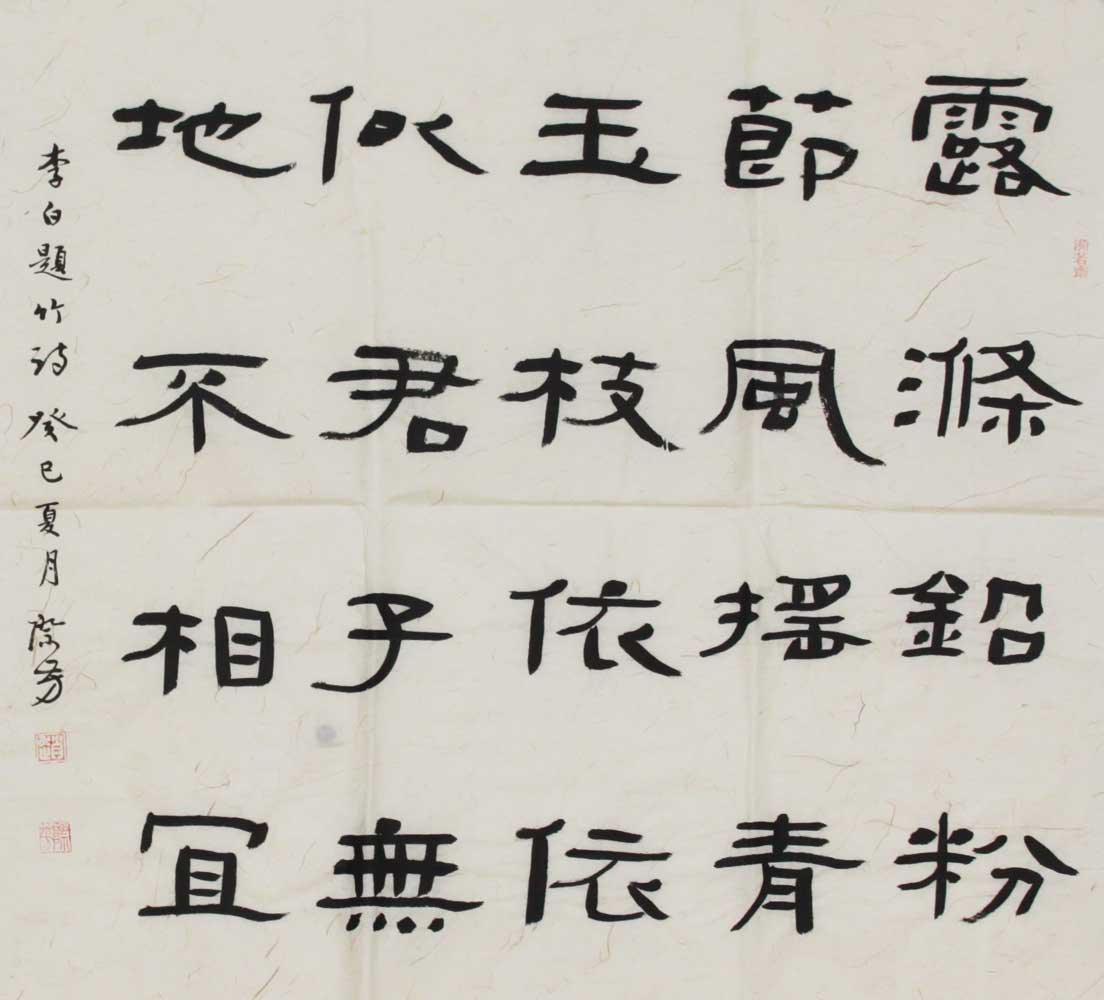 露滌鉛粉
節風搖青
玉枝依依
似君子無
地不相宜
李白題竹詩 癸巳夏月